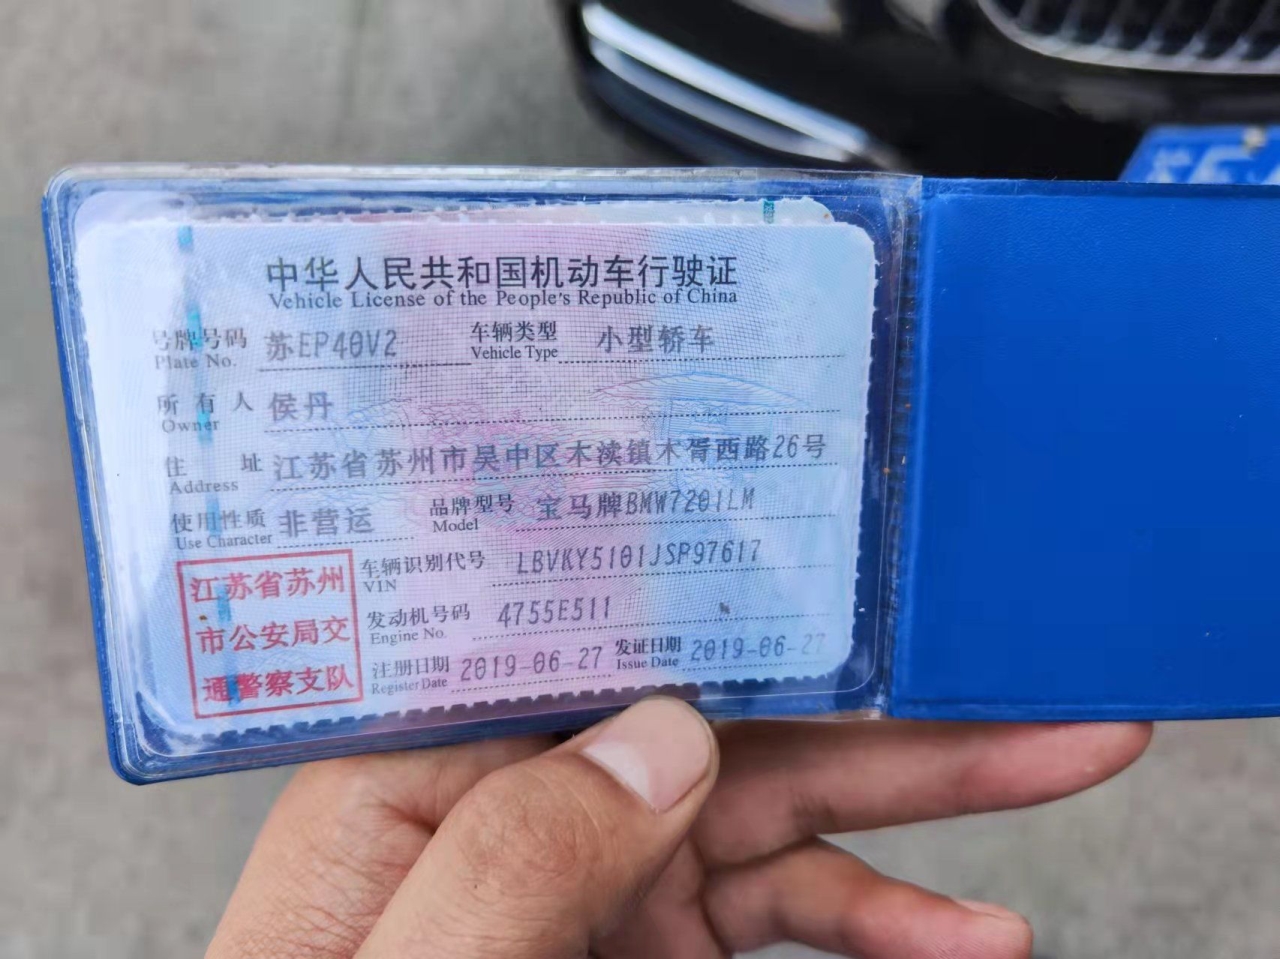 中华人民共和国机动车行驶证
Vehicle License of the People's Republic of China
号牌号码 苏EP40V2 车辆类型 小型轿车
Plate No. Vehicle Type
所有人 侯丹
Owner
住址 江苏省苏州市吴中区木渎镇木胥西路26号
Address
使用性质 非营运 品牌型号 宝马牌BMW7201LM
Use Character Model
江苏省苏州
市公安局交
通警察支队
车辆识别代号 LBVKY5101JSP97617
VIN
发动机号码 4755E511
Engine No.
注册日期 2019-06-27 发证日期 2019-06-27
Register Date Issue Date